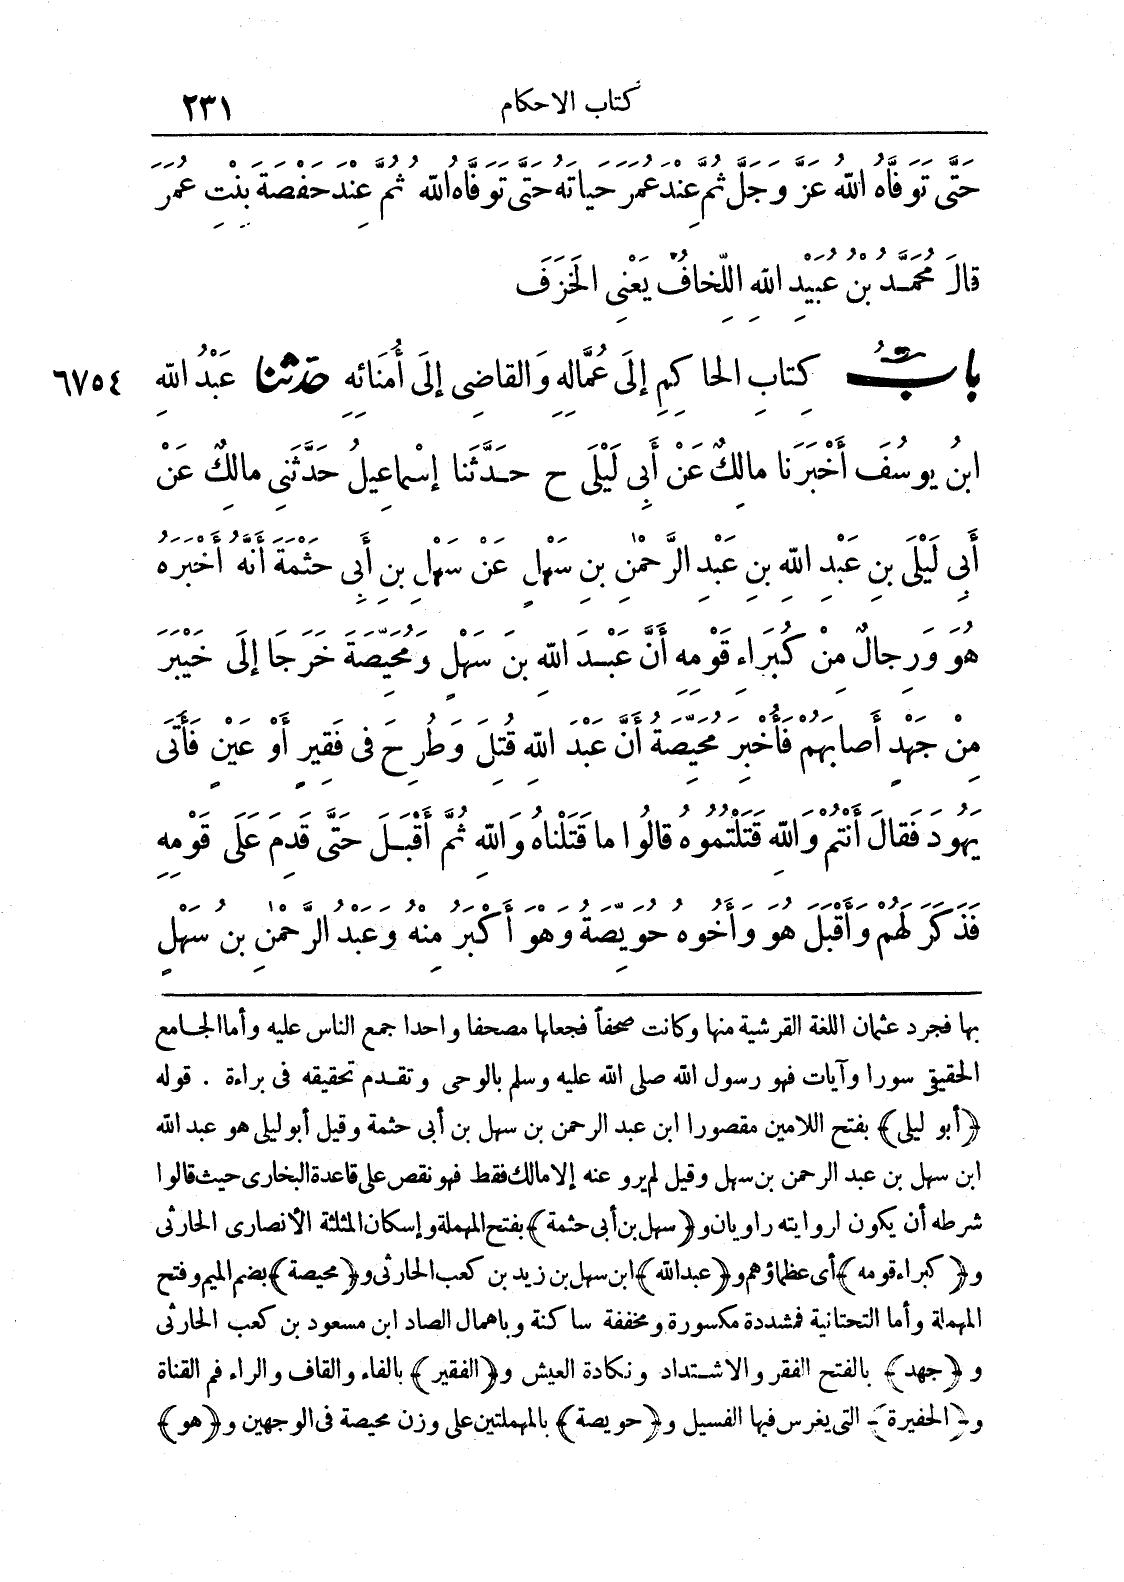 كتاب الاحكام ٢٣١
حَتَّى تَوَفَّاهُ اللهُ عَزَّ وَجَلَّ ثُمَّ عِنْدَ عُمَرَ حَيَاتَهُ حَتَّى تَوَفَّاهُ اللهُ ثُمَّ عِنْدَ حَفْصَةَ بِنْتِ عُمَرَ
قَالَ مُحَمَّدُ بْنُ عُبَيْدِ اللهِ اللِّخافُ يَعْنِى الخَزَفَ
بابُ كِتابِ الحاكِمِ إلَى عُمَّالِهِ وَالقاضِى إلَى أُمَنَائِهِ حدثنا عَبْدُ اللهِ ٦٧٥٤
ابنُ يوسُفَ أَخْبَرَنا مالِكٌ عَنْ أَبِى لَيْلَى ح حَدَّثَنا إسْماعِيلُ حَدَّثَنِى مالِكٌ عَنْ
أَبِى لَيْلَى بنِ عَبْدِ اللهِ بنِ عَبْدِ الرَّحْمٰنِ بنِ سَهْلٍ عَنْ سَهْلِ بنِ أَبِى حَثْمَةَ أَنَّهُ أَخْبَرَهُ
هُوَ وَرِجالٌ مِنْ كُبَرَاءِ قَوْمِهِ أَنَّ عَبْدَ اللهِ بنَ سَهْلٍ وَمُحَيِّصَةَ خَرَجَا إلَى خَيْبَرَ
مِنْ جَهْدٍ أَصابَهُمْ فَأُخْبِرَ مُحَيِّصَةُ أَنَّ عَبْدَ اللهِ قُتِلَ وَطُرِحَ فى فَقِيرٍ أَوْ عَيْنٍ فَأَتَى
يَهُودَ فَقَالَ أَنْتُمْ وَاللهِ قَتَلْتُمُوهُ قالُوا ما قَتَلْنَاهُ وَاللهِ ثُمَّ أَقْبَلَ حَتَّى قَدِمَ عَلَى قَوْمِهِ
فَذَكَرَ لَهُمْ وَأَقْبَلَ هُوَ وَأَخُوهُ حُوَيِّصَةُ وَهُوَ أَكْبَرُ مِنْهُ وَعَبْدُ الرَّحْمٰنِ بنُ سَهْلٍ
بها فجرد عثمان اللغة القرشية منها وكانت صحفاً فجعلها مصحفا واحدا جمع الناس عليه وأما الجامع
الحقيقى سورا وآيات فهو رسول الله صلى الله عليه وسلم بالوحى وتقدم تحقيقه فى براءة . قوله
﴿أبو ليلى﴾ بفتح اللامين مقصورا ابن عبد الرحمن بن سهل بن أبى حثمة وقيل أبو ليلى هو عبد الله
ابن سهل بن عبد الرحمن بن سهل وقيل لم يرو عنه إلا مالك فقط فهو نقص على قاعدة البخارى حيث قالوا
شرطه أن يكون لروايته راويان و﴿سهل بن أبى حثمة﴾ بفتح المهملة وإسكان المثلثة الأنصارى الحارثى
و﴿كبراء قومه﴾ أى عظماؤهم و﴿عبد الله﴾ ابن سهل بن زيد بن كعب الحارثى و﴿محيصة﴾ بضم الميم وفتح
المهملة وأما التحتانية فمشددة مكسورة ومخففة ساكنة وباهمال الصاد ابن مسعود بن كعب الحارثى
و﴿جهد﴾ بالفتح الفقر والاشتداد ونكادة العيش و﴿الفقير﴾ بالفاء والقاف والراء فم القناة
و﴿الحفيرة﴾ التى يغرس فيها الفسيل و﴿حويصة﴾ بالمهملتين على وزن محيصة فى الوجهين و﴿هو﴾